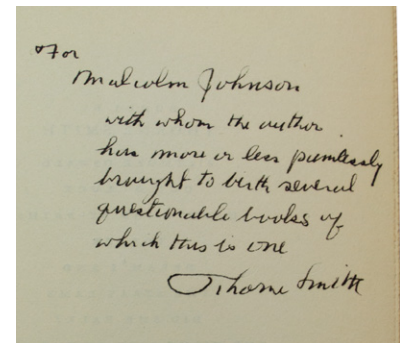 For
Malcolm Johnson
with whom the author
has more or less painlessly
brought to birth several
questionable books of
which this is one
Thorne Smith